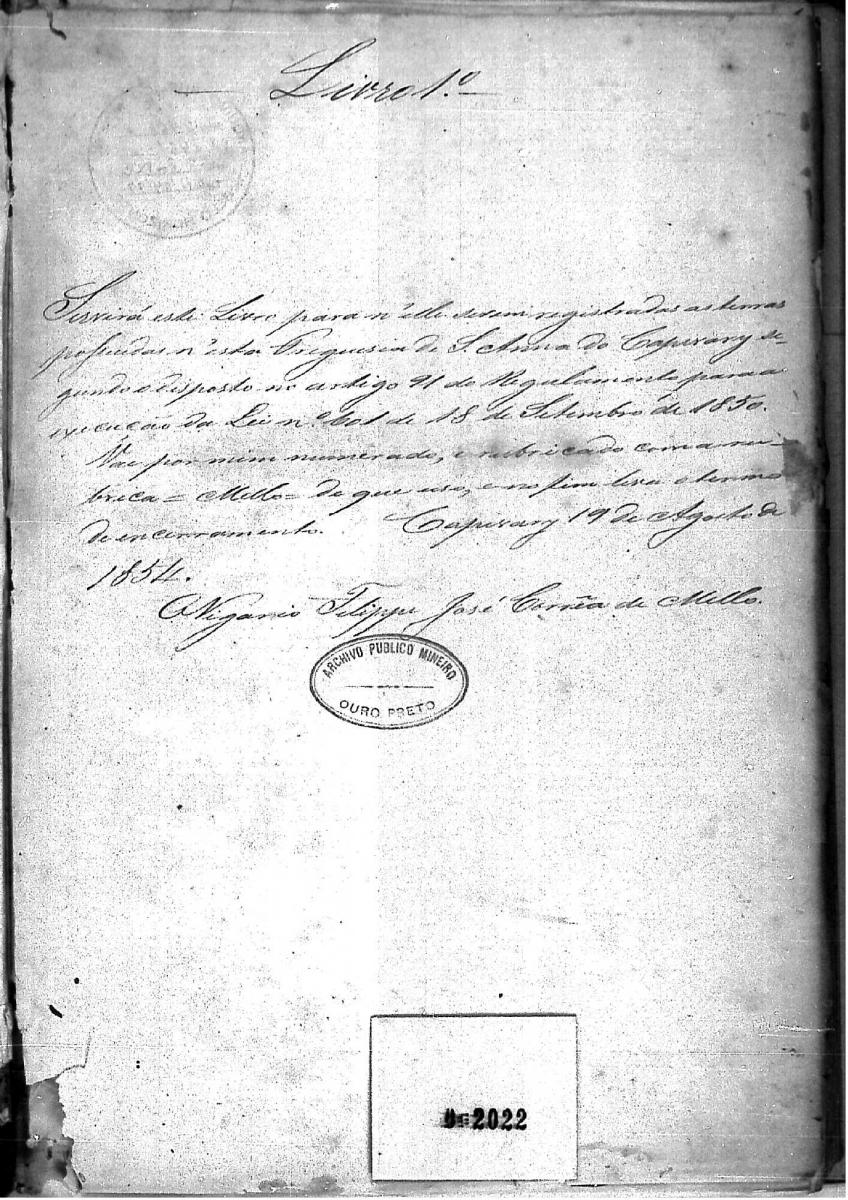 Livro 1.º
Servirá este Livro para n'elle serem registradas as terras
possuidas n'esta Freguesia de S. Anna do Capivary se-
gundo o disposto no artigo 91 do Regulamento para a
execução da Lei nº 601 de 18 de Setembro de 1850.
Vai por mim numerado, e rubricado com a ru-
brica = Mello = de que uso, e no fim leva o termo
de encerramento. Capivary 19 de Agosto de
1854.
O Vigario Filippe José Corrêa de Mello.
ARCHIVO PUBLICO MINEIRO
OURO PRETO
2022